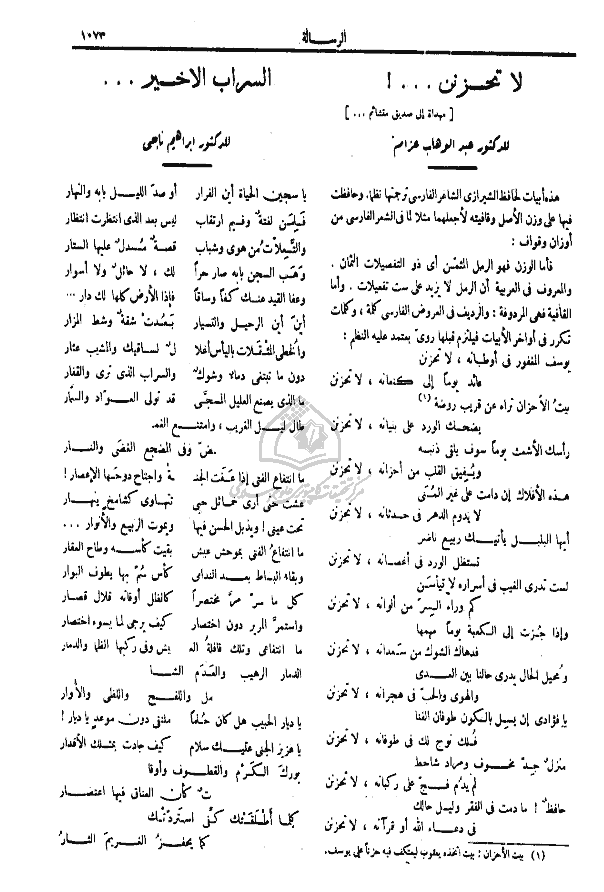 ١٠٧٣
الرسالة
لا تحزنن . . . !
[ مهداة إلى صديق متشائم ... ]
للدكتور عبد الوهاب عزام
هذه أبيات لحافظ الشيرازى الشاعر الفارسى ترجمتها نظما، وحافظت
فيها على وزن الأصل وقافيته لأجعلهما مثلا لما فى الشعر الفارسى من
أوزان وقواف :
فأما الوزن فهو الرمل المثمّن أى ذو التفصيلات الثمان .
والمعروف فى العربية أن الرمل لا يزيد على ست تفعيلات . وأما
القافية فهى المردوفة : والرديف فى العروض الفارسى كلمة ، وكلمات
تتكرر فى أواخر الأبيات فيلتزم قبلها روىّ يعتمد عليه النظم :
يوسف المفقور فى أوطانه ، لا تحزنن
عائد يوماً إلى كنعانه ، لا تحزنن
بيتُ الأحزان تراه عن قريب روضة (١)
يضحك الورد على بنيانه ، لا تحزنن
رأسك الأشعث يوماً سوف يلقى زينة
ويُفيق القلب من أحزانه ، لا تحزنن
هذه الأفلاك إن دامت على غير المُنى
لا يدوم الدهر فى حدثانه ، لا تحزنن
أيها البلبل يأتيك ربيع ناضر
تستظل الورد فى أغصانه ، لا تحزنن
لست تدرى الغيب فى أسراره لا تيأسن
كم وراء السِتر من ألوانه ، لا تحزنن
وإذا جُزت إلى الكعبة يوماً مهمها
فدهاك الشوك من سَعدانه ، لا تحزنن
ومُحيل الحال يدرى حالنا بين العدى
والهوى والحب فى هجرانه ، لا تحزنن
يا فؤادى إن يسيل بالكون طوفان الفنا
فُلك نوح لك فى طوفانه ، لا تحزنن
منزل جِدّ مخوف ومراد شاحط
لم يدُم فجّ على ركبانه ، لا تحزنن
حافظٌ ! ما دمت فى الفقر وليل حالك
فى دعاء الله أو قرآنه ، لا تحزنن
(١) بيت الأحزان : بيت اتخذه يعقوب ليعتكف فيه حزناً على يوسف.
السراب الأخير . . .
للدكتور ابراهيم ناجى
يا سجين الحياة أين الفرار أوصدَ الليل بابه والنهار
فَلمن لفتة وفيم ارتقاب ليس بعد الذى انتظرت انتظار
والتَّعِلّات من هوى وشباب قصة مُسدل عليها الستار
وهَب السجن بابه صار حراً لك ، لا حائل ولا أسوار
وعفا القيد عنك كفاً وساقاً فإذا الأرض كلها لك دار ...
أين أين الرحيل والتسيار بَعُدت شقة وشط المزار
والخطى المثقلات باليأس أغلا ل لساقيك والمشيب عثار
دون ما تبتغى دماء وشوك والسراب الذى ترى والقفار
ما الذى يصنع العليل المسجّى قد تولى العوّاد والسمّار
طال ليل الغريب ، وامتنع الغمـ
ـض وفى المضجع الغضى والنار
ما انتفاع الفتى إذا عَفت الجنـ ـة واجتاح دوحها الإعصار !
عشت حتى أرى خمائل حبى تتهاوى كشامخ ينهار
تحت عينى ! ويذبل الحسن فيها ويموت الربيع والأنوار ...
ما انتفاع الفتى بموحش عيش بقيت كأسه وطاح العقار
وبقاء البساط بعد الندامى كأس سُمّ بها يطوف البوار
كل ما سر مرّ مختصراً كالظل أوقاته قلال قصار
واستمرّ المرير دون اختصار كيف يرجى لما يسوء اختصار
ما انتفاعى وتلك قافلة العـ ـيش وفى ركبها اللظى والدمار
الدمار الرهيب والعدم الشا
مل واللفح واللظى والأوار
يا ديار الحبيب هل كان حُلماً ملتقى دون موعد يا ديار !
يا عزيز الجنى عليك سلام كيف جادت بمثلك الأقدار
بورك الكَرْم والقطوف وأوقا
تٌ كأن العناق فيها اعتصار
كلما أطلقتك كفّى استردتك
كما يحفز الغريمَ الثار